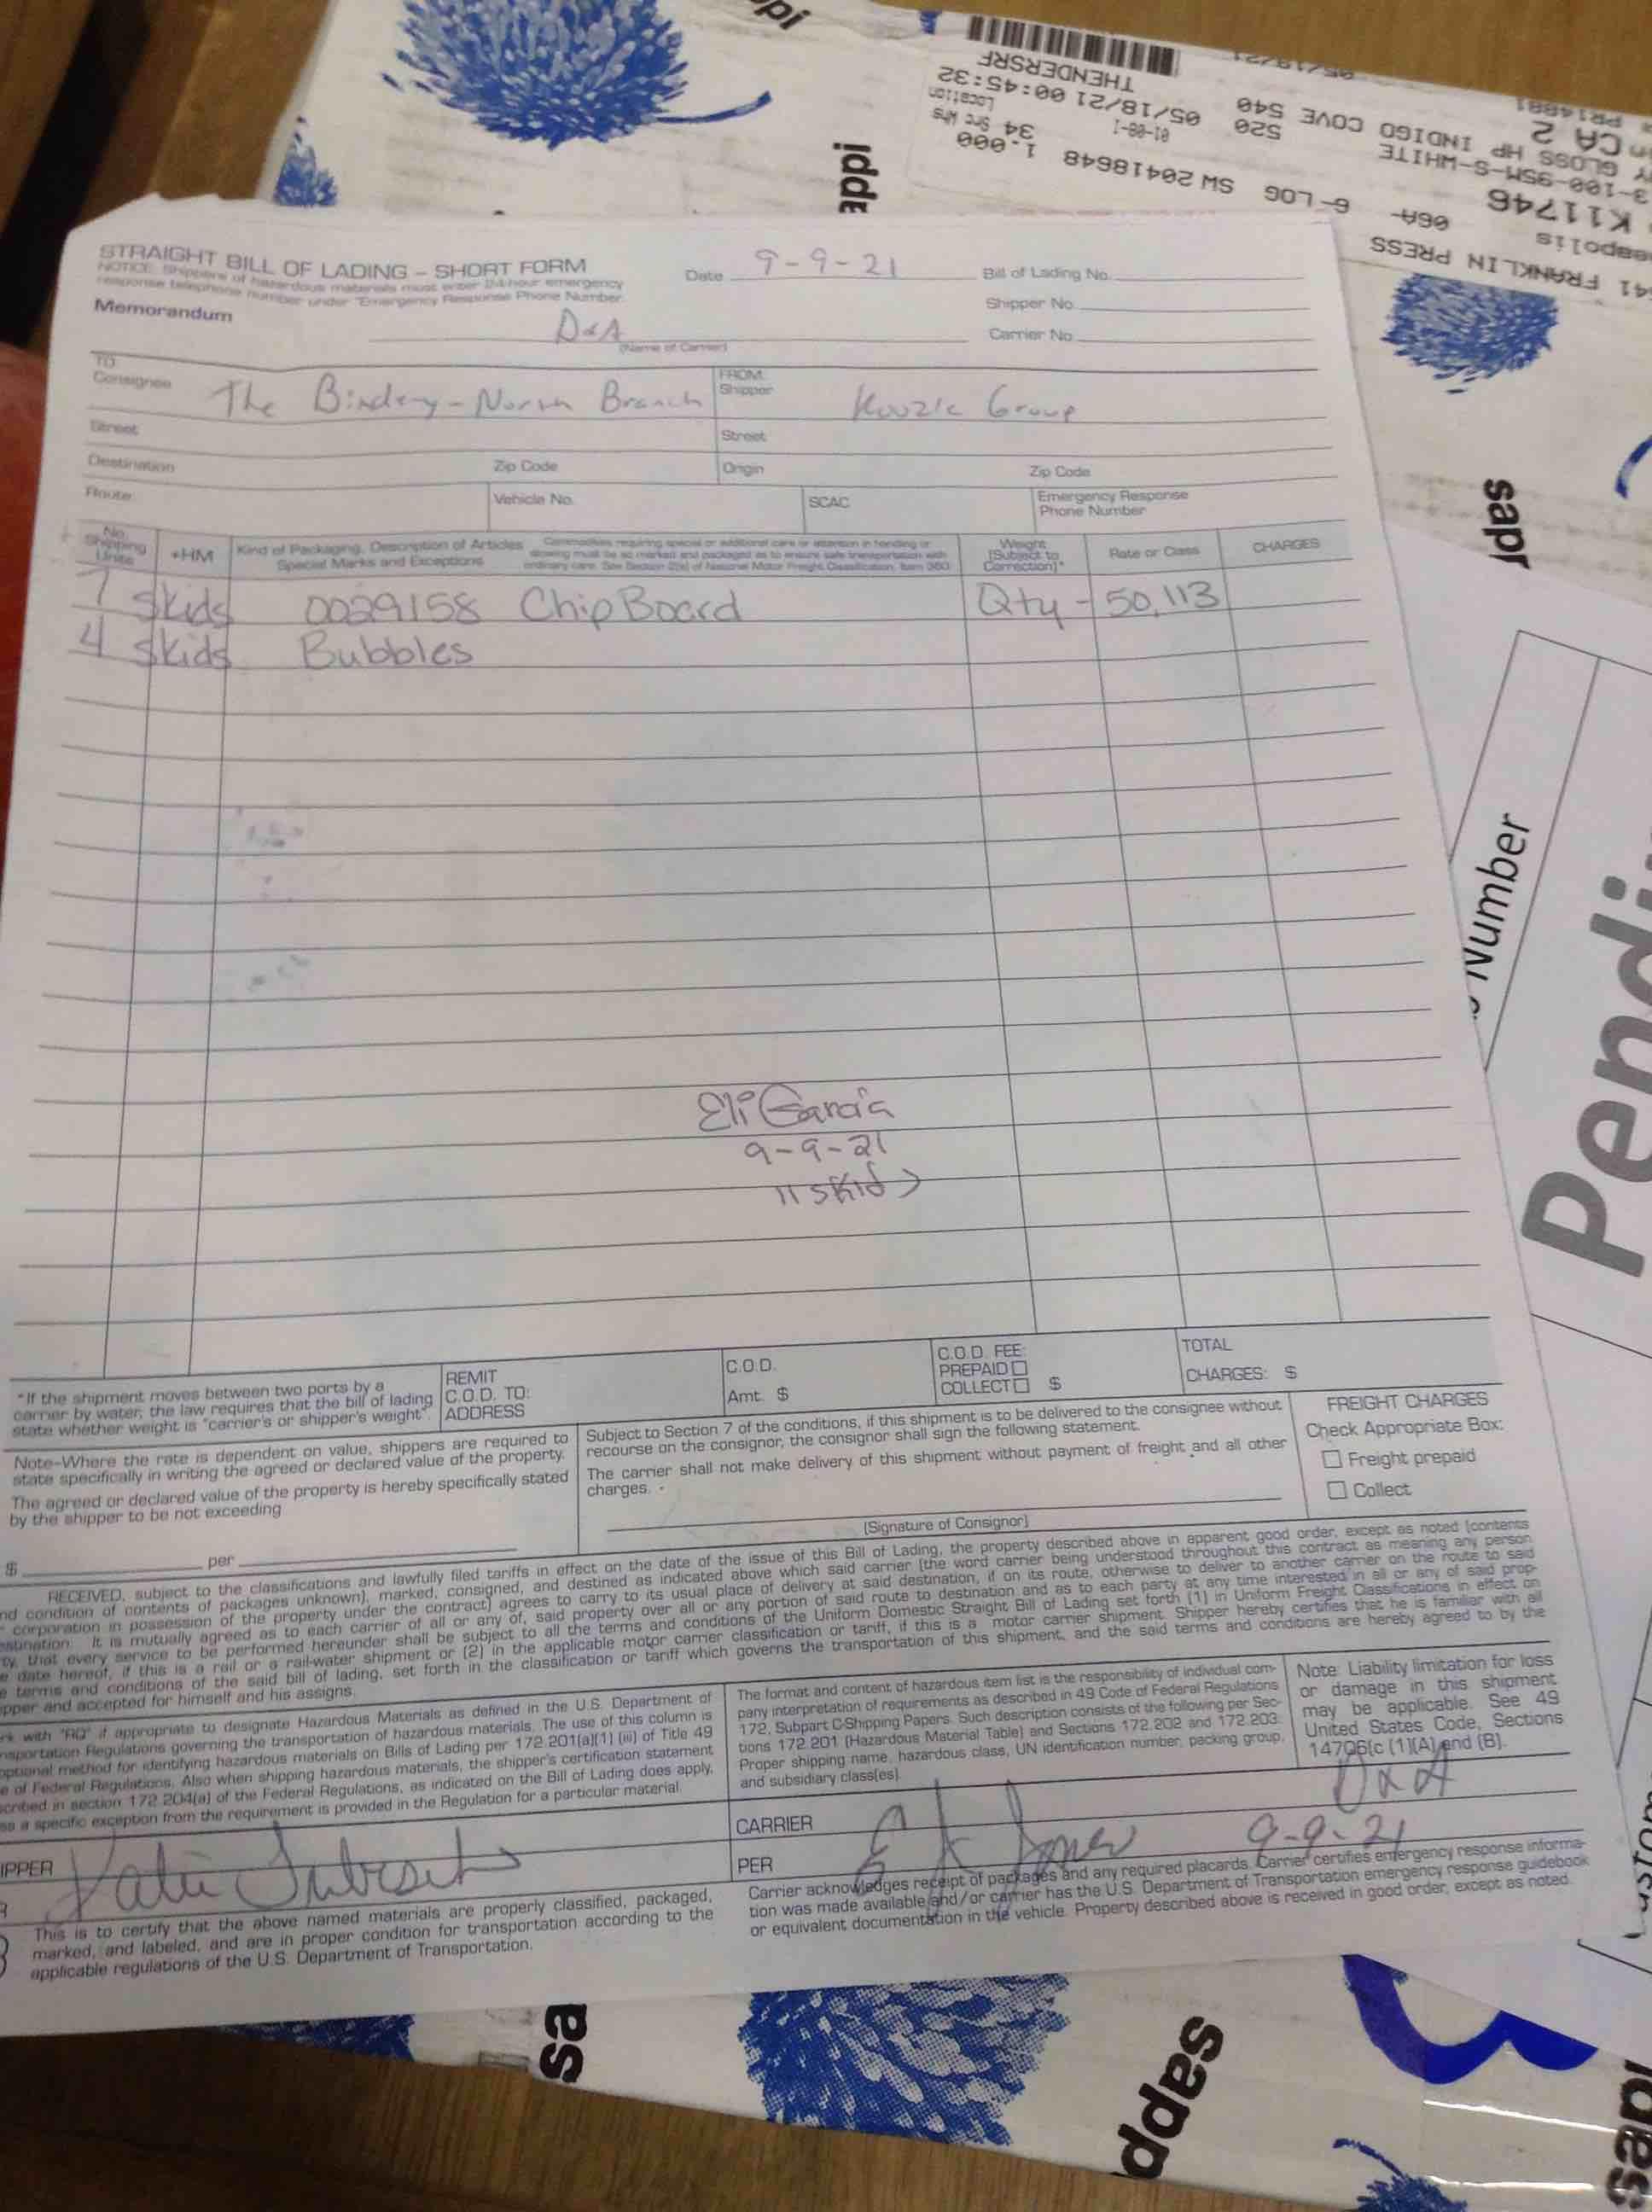 sappi
THENDERSRF
05/18/21 00:45:32
Location
01-08-1
34 Src Whs
1.000
520
INDIGO COVE 540
GLOSS HP
CA 2
3-100-95M-S-WHITE
K11746
06A-
6-LOG SW 20418648
FRANKLIN PRESS
STRAIGHT BILL OF LADING – SHORT FORM
NOTICE: Shippers of hazardous materials must enter 24-hour emergency
response telephone number under "Emergency Response Phone Number.
Memorandum
Date 9-9-21
Bill of Lading No.
Shipper No.
Carrier No.
D&A
(Name of Carrier)
TO:
Consignee The Bindery - North Branch
FROM:
Shipper Kouzle Group
Street
Street
Destination Zip Code
Origin Zip Code
Route:
Vehicle No.
SCAC
Emergency Response
Phone Number
No.
Shipping
Units
+HM
Kind of Packaging, Description of Articles
Special Marks and Exceptions
Commodities requiring special or additional care or attention in handling or
stowing must be so marked and packaged as to ensure safe transportation with
ordinary care. See Section 2(e) of National Motor Freight Classification, Item 360
Weight
(Subject to
Correction)*
Rate or Class
CHARGES
7 skids 0029158 ChipBoard Qty - 50,113
4 skids Bubbles
Eli Garcia
9-9-21
11 skid
*If the shipment moves between two ports by a
carrier by water, the law requires that the bill of lading
state whether weight is "carrier's or shipper's weight".
REMIT
C.O.D. TO:
ADDRESS
C.O.D.
Amt. $
C.O.D. FEE:
PREPAID
COLLECT $
TOTAL
CHARGES: $
Note–Where the rate is dependent on value, shippers are required to
state specifically in writing the agreed or declared value of the property.
The agreed or declared value of the property is hereby specifically stated
by the shipper to be not exceeding
$ per
Subject to Section 7 of the conditions, if this shipment is to be delivered to the consignee without
recourse on the consignor, the consignor shall sign the following statement.
The carrier shall not make delivery of this shipment without payment of freight and all other
charges.
(Signature of Consignor)
FREIGHT CHARGES
Check Appropriate Box:
Freight prepaid
Collect
RECEIVED, subject to the classifications and lawfully filed tariffs in effect on the date of the issue of this Bill of Lading, the property described above in apparent good order, except as noted (contents
condition of contents of packages unknown), marked, consigned, and destined as indicated above which said carrier (the word carrier being understood throughout this contract as meaning any person
corporation in possession of the property under the contract) agrees to carry to its usual place of delivery at said destination, if on its route, otherwise to deliver to another carrier on the route to said
destination. It is mutually agreed as to each carrier of all or any of, said property over all or any portion of said route to destination and as to each party at any time interested in all or any of said prop-
ty, that every service to be performed hereunder shall be subject to all the terms and conditions of the Uniform Domestic Straight Bill of Lading set forth (1) in Uniform Freight Classifications in effect on
date hereof, if this is a rail or a rail-water shipment or (2) in the applicable motor carrier classification or tariff, if this is a motor carrier shipment. Shipper hereby certifies that he is familiar with all
terms and conditions of the said bill of lading, set forth in the classification or tariff which governs the transportation of this shipment, and the said terms and conditions are hereby agreed to by the
pper and accepted for himself and his assigns.
with "RQ" if appropriate to designate Hazardous Materials as defined in the U.S. Department of
nsportation Regulations governing the transportation of hazardous materials. The use of this column is
optional method for identifying hazardous materials on Bills of Lading per 172.201(a)(1) (iii) of Title 49
e of Federal Regulations. Also when shipping hazardous materials, the shipper's certification statement
cribed in section 172.204(a) of the Federal Regulations, as indicated on the Bill of Lading does apply,
ss a specific exception from the requirement is provided in the Regulation for a particular material.
The format and content of hazardous item list is the responsibility of individual com-
pany interpretation of requirements as described in 49 Code of Federal Regulations
172, Subpart C-Shipping Papers. Such description consists of the following per Sec-
tions 172.201 (Hazardous Material Table) and Sections 172.202 and 172.203:
Proper shipping name, hazardous class, UN identification number, packing group,
and subsidiary class(es).
Note: Liability limitation for loss
or damage in this shipment
may be applicable. See 49
United States Code, Sections
14706(c (1)(A) and (B).
IPPER Katie
CARRIER D&A
PER 9-9-21
This is to certify that the above named materials are properly classified, packaged,
marked, and labeled, and are in proper condition for transportation according to the
applicable regulations of the U.S. Department of Transportation.
Carrier acknowledges receipt of packages and any required placards. Carrier certifies emergency response informa-
tion was made available and/or carrier has the U.S. Department of Transportation emergency response guidebook
or equivalent documentation in the vehicle. Property described above is received in good order, except as noted.
Number
Pendi
sappi
sa
sappi